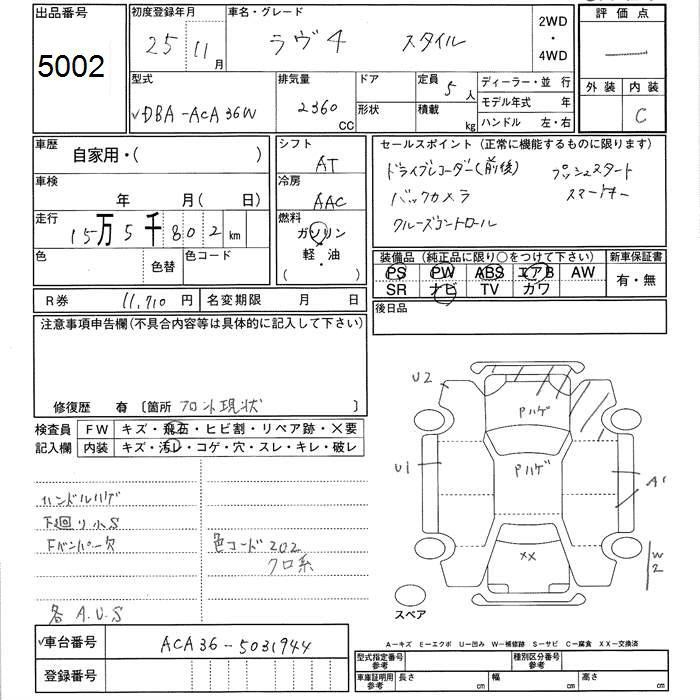 出品番号
5002
初度登録年月
25 11月
車名・グレード
ラヴ4 スタイル
2WD
・
4WD
評価点
—
外装 内装
C
型式
✓DBA-ACA36W
排気量
2360
CC
ドア
形状
定員
5人
積載
kg
ディーラー・並 行
モデル年式 年
ハンドル 左・右
車歴
自家用・( )
車検
年 月( 日)
走行
15万5千802 km
色
色替
色コード
シフト
AT
冷房
AAC
燃料
ガソリン
・
軽・油
( )
セールスポイント (正常に機能するものに限ります)
ドライブレコーダー(前後) プッシュスタート
バックカメラ スマートキー
クルーズコントロール
装備品 (純正品に限り○をつけて下さい)
PS PW ABS エアB AW
SR ナビ TV カワ
新車保証書
有・無
後日品
R券 11,710 円
名変期限 月 日
注意事項申告欄(不具合内容等は具体的に記入して下さい)
修復歴 有 〔箇所 フロント現状 〕
検査員
記入欄
FW キズ・飛石・ヒビ割・リペア跡・×要
内装 キズ・汚レ・コゲ・穴・スレ・キレ・破レ
ハンドルハゲ
下廻り小S
Fバンパー欠
色コード202
クロ系
各A.U.S
U2
Pハゲ
U1
Pハゲ
A1
XX
W2
スペア
✓車台番号 ACA36-5031944
登録番号
A-キズ E-エクボ U-凹み W-補修跡 S-サビ C-腐食 XX-交換済
型式指定番号
参考
種別区分番号
参考
車庫証明用
参考
長さ cm
幅 cm
高さ cm